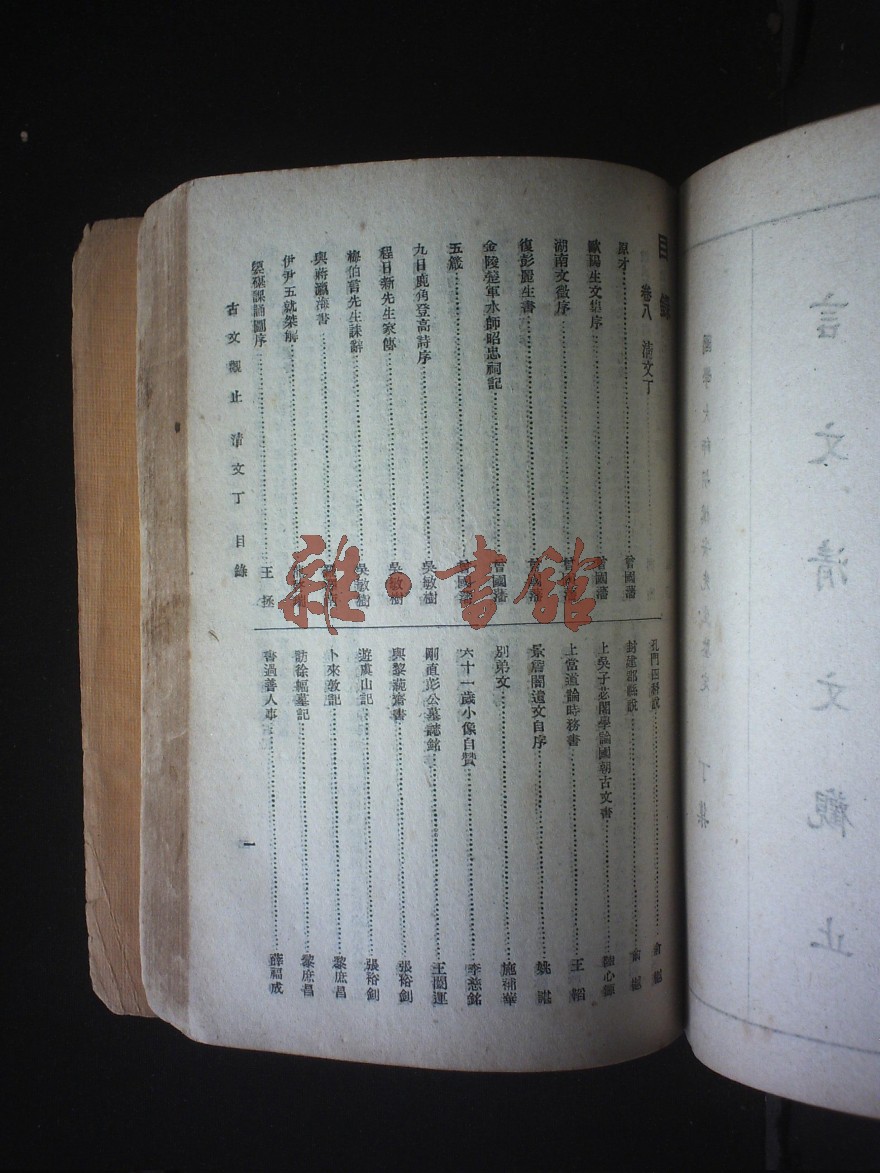 目錄
卷八 清文丁
原才 曾國藩
歐陽生文集序 曾國藩
湖南文徵序 曾國藩
復彭麗生書 曾國藩
金陵楚軍水師昭忠祠記 曾國藩
五箴 曾國藩
九日鹿角登高詩序 吳敏樹
程日新先生家傳 吳敏樹
梅伯言先生誄辭 吳敏樹
與蔣瀛海書
伊尹五就桀解
媭碪課誦圖序 王拯
孔門四科說 俞樾
封建郡縣說 俞樾
上吳子苾閣學論國朝古文書
上當道論時務書 王韜
遺文自序
別弟文 施補華
六十一歲小像自贊 李慈銘
剛直彭公墓誌銘 王闓運
與黎蒓齋書 張裕釗
遊虞山記 張裕釗
卜來敦記 黎庶昌
訪徐福墓記 黎庶昌
書過善人事 薛福成
古文觀止 清文丁 目錄
一
雜·書館
言文清文觀止
丁集